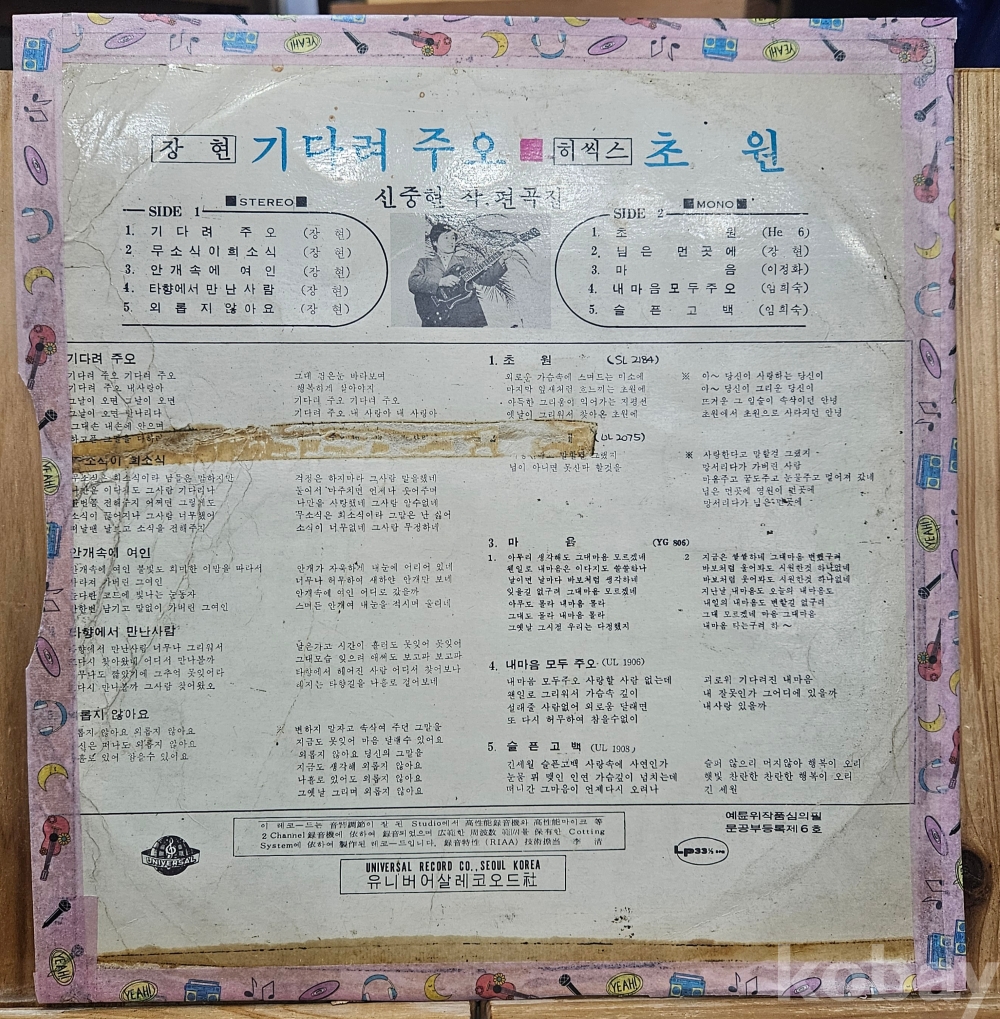 장 현 기다려 주오 ■ 히씩스 초 원
신중현 작.편곡집
SIDE 1 ■STEREO■
1. 기 다 려 주 오 (장 현)
2. 무소식이희소식 (장 현)
3. 안개속에 여인 (장 현)
4. 타향에서만난사람 (장 현)
5. 외 롭 지 않 아 요 (장 현)
SIDE 2 ■MONO■
1. 초 원 (He 6)
2. 님 은 먼 곳 에 (장 현)
3. 마 음 (이정화)
4. 내마음모두주오 (임희숙)
5. 슬 픈 고 백 (임희숙)
기다려 주오
기다려 주오 기다려 주오
기다려 주오 내사랑아
그날이 오면 그날이 오면
그날이 오면
그대손 내손에 안으며
그대 검은눈 바라보며
행복하게 살아야지
기다려 주오 기다려 주오
기다려 주오 내 사랑아 내 사랑아
소식이 희소식
무소식은 희소식이라 남들은 말하지만
걱정은 하지마라 그사람 말을했네
돌아서 마주치면 언제나 웃어주며
나만을 사랑했네 그사람 알수없네
무소식은 희소식이라 그말은 난 싫어
소식이 너무없네 그사람 무정하네
안개속에 여인
안개속에 여인 불빛도 희미한 이밤을 따라서
사라져 가버린 그여인
남기고 말없이 가버린 그여인
안개가 자욱하게 내눈에 어리어 있네
너무나 허무하여 새하얀 안개만 보네
안개속에 여인 어디로 갔을까
스며든 안개여 내눈을 적시며 울리네
타향에서 만난사람
타향에서 만난사람 너무나 그리워서
다시 찾아왔네 어디서 만나볼까
다시 만나볼까 그사람 찾어왔오
날은가고 시간이 흘러도 못잊어 못잊어
그대모습 잊으려 애써도 보고파 보고파
타향에서 헤어진 사람 어디서 찾어보나
해지는 타향길을 나홀로 걸어보네
롭지 않아요
롭지 않아요 외롭지 않아요
신은 떠나도 외롭지 않아요
홀로 있어 있어요
※ 변하지 말자고 속삭여 주던 그말을
지금도 못잊어 마음 달랠수 있어요
외롭지 않아요 당신의 그말을
지금도 생각해 외롭지 않아요
나홀로 있어도 외롭지 않아요
그옛날 그리며 외롭지 않아요
1. 초 원 (SL 2184)
외로운 가슴속에 스며드는 미소에
마지막 잎새처럼 흐느끼는 초원에
아득한 그리움이 익어가는 지평선
옛날이 그리워서 찾아온 초원에
※ 아~ 당신이 사랑하는 당신이
아~ 당신이 그리운 당신이
뜨거운 그 입술이 속삭이던 안녕
초원에서 초원으로 사라지던 안녕
(UL 2075)
말할걸 그랬지
님이 아니면 못산다 할것을
※ 사랑한다고 말할걸 그랬지
망서리다가 가버린 사람
마음주고 꿈도주고 눈물주고 멀어져 갔네
님은 먼곳에 영원히 먼곳에
망서리다가 님은 먼곳에
3. 마 음 (YG 806)
1. 아무리 생각해도 그대마음 모르겠네
웬일로 내마음은 이다지도 쓸쓸하나
날이면 날마다 바보처럼 생각하네
잊을길 없구려 그대마음 모르겠네
아무도 몰라 내마음 몰라
그대도 몰라 내마음 몰라
그옛날 그시절 우리는 다정했지
2 지금은 쌀쌀하네 그대마음 변했구려
바보처럼 웃어봐도 시원한것 하나없네
바보처럼 웃어봐도 시원한것 하나없네
지난날 내마음도 오늘의 내마음도
내일의 내마음도 변할길 없구려
그대 모르겠네 마음 그대마음
내마음 타는구려 하 ~
4. 내마음 모두 주오. (UL 1906)
내마음 모두주오 사랑할 사람 없는데
웬일로 그리워서 가슴속 깊이
설래줄 사람없어 외로움 달래면
또 다시 허무하여 참을수없이
괴로위 기다려진 내마음
내 잘못인가 그어디에 있을까
내사랑 있을까
5. 슬 픈 고 백 (UL 1908)
긴세월 슬픈고백 사랑속에 사연인가
눈물 뒤 맺인 인연 가슴깊이 넘치는데
떠나간 그마음이 언제다시 오려나
슬퍼 않으리 머지않아 행복이 오리
햇빛 찬란한 찬란한 행복이 오리
긴 세월
이 레코드는 音質調節이 잘 된 Studio에서 高性能録音機와 高性能마이크 等
2 Channel 録音機에 依하여 録音되었으며 広範한 周波数 範囲를 保有한 Cotting
System에 依하여 製作된 레코드입니다. 録音特性 (RIAA) 技術擔当 李 清
UNIVERSAL
UNIVERSAL RECORD CO., SEOUL KOREA
유니버어살레코오드社
예륜위작품심의필
문공부등록제6호
LP33⅓ RPM
YEAH!
kobay